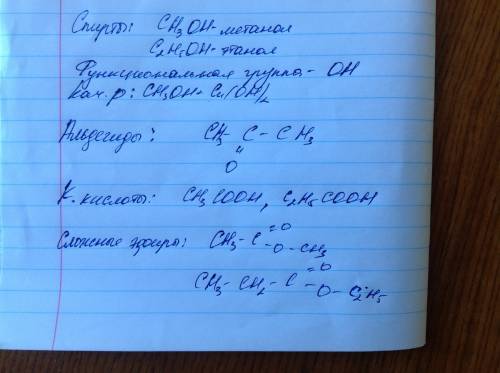 Спирты: CH₃OH - метанол
C₂H₅OH - этанол
Функциональная группа - OH
Кач. р: CH₃OH + Cu(OH)₂
Альдегиды: CH₃ - C - CH₃
"
O
К. кислоты: CH₃COOH, C₂H₅COOH
Сложные эфиры: CH₃ - C =O
- O - CH₃
CH₃ - CH₂ - C =O
- O - C₂H₅